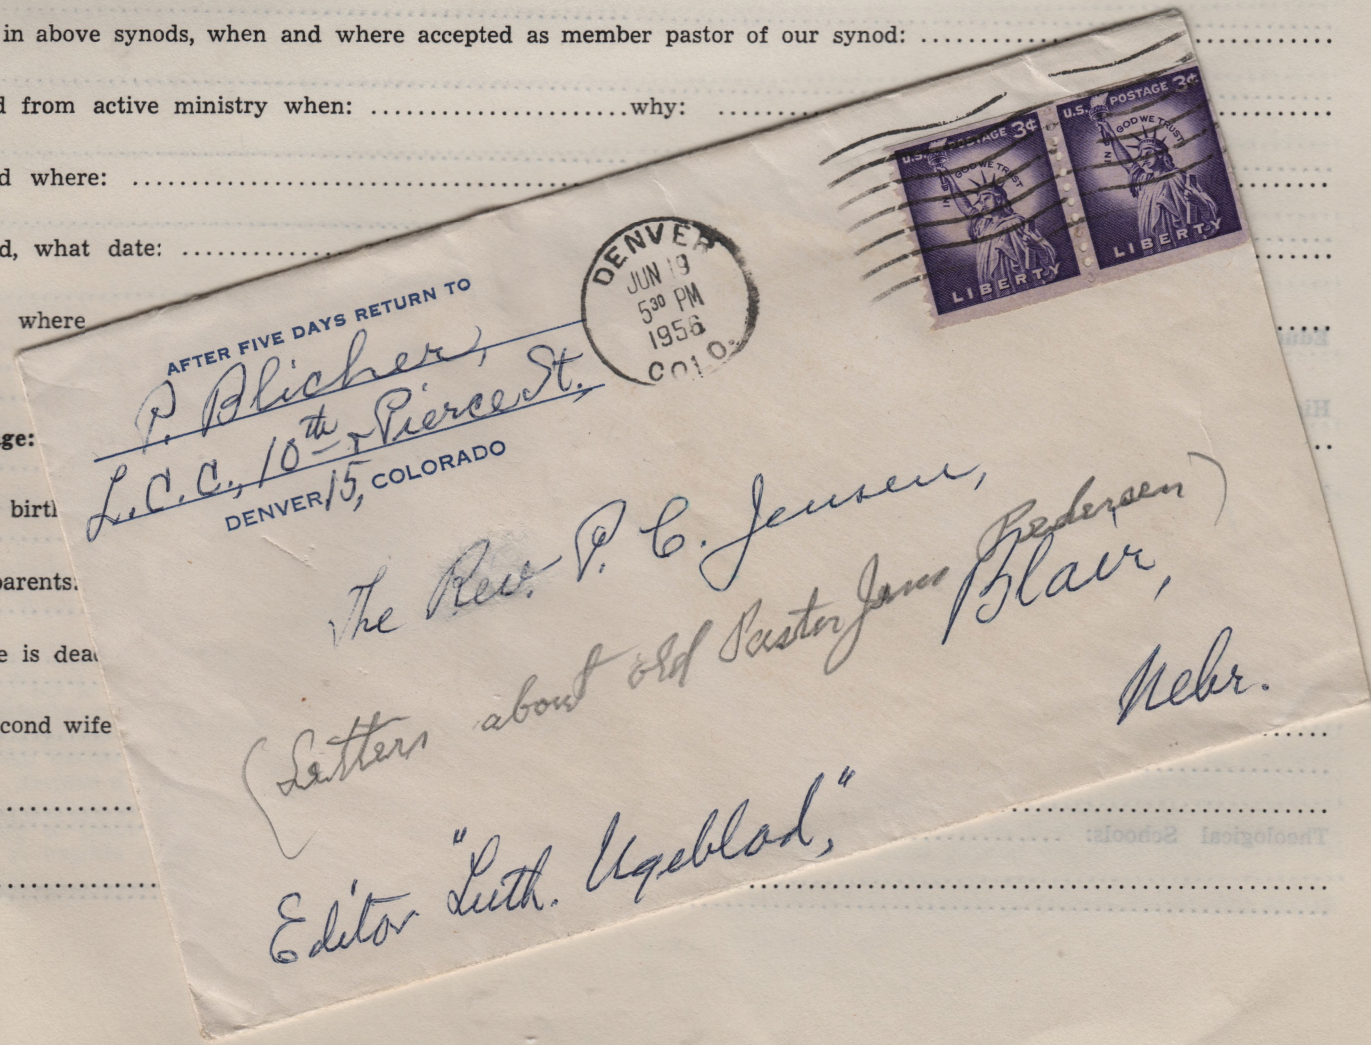 in above synods, when and where accepted as member pastor of our synod:
d from active ministry when: why:
d where:
d, what date:
where
ge:
birth
parents:
e is dea
cond wife
AFTER FIVE DAYS RETURN TO
P. Blicher,
L.C.C., 10th & Pierce St.,
DENVER 15, COLORADO
DENVER
JUN 19
5 30 PM
1956
COLO.
U.S. POSTAGE 3¢
IN GOD WE TRUST
LIBERTY
U.S. POSTAGE 3¢
IN GOD WE TRUST
LIBERTY
The Rev. P. C. Jensen,
Blair,
Nebr.
(Letters about old Pastor Jens Pedersen)
Editor "Luth. Ugeblad,"
Theological Schools: